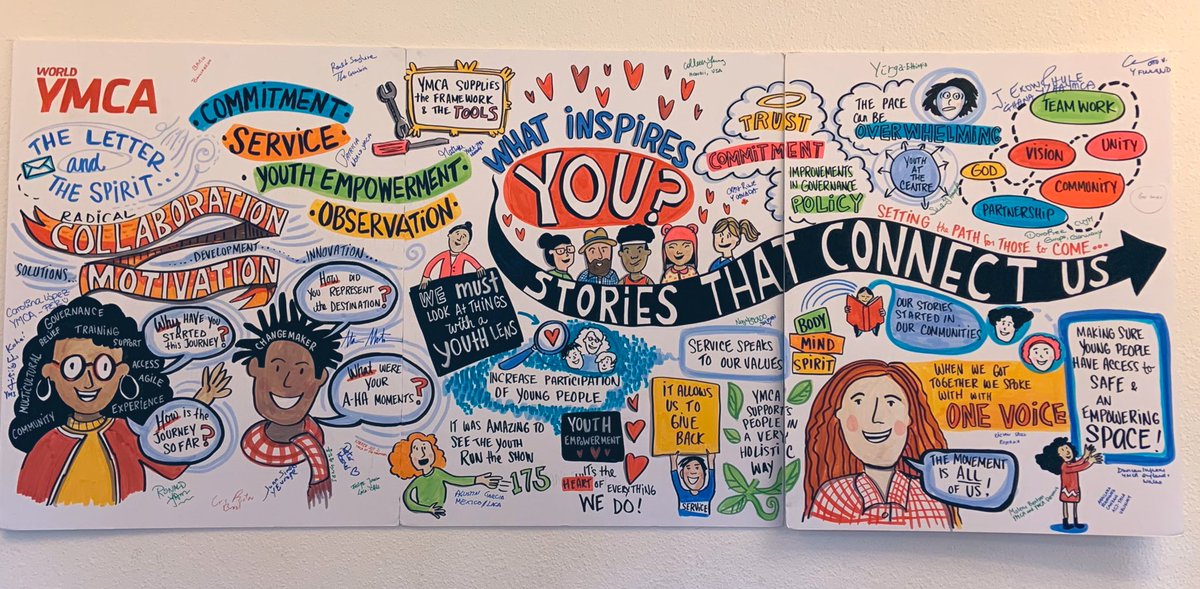 WORLD
YMCA
THE LETTER
and
THE SPIRIT...
COMMITMENT
SERVICE
YOUTH EMPOWERMENT
OBSERVATION
RADICAL
COLLABORATION
...DEVELOPMENT...
...INNOVATION...
MOTIVATION
SOLUTIONS...
Carolina López
YMCA - PERU
MULTICULTURAL
BELIEF
GOVERNANCE
TRAINING
SUPPORT
ACCESS
AGILE
EXPERIENCE
COMMUNITY
WHY HAVE YOU
STARTED
this JOURNEY?
HOW IS the
JOURNEY
SO FAR?
CHANGEMAKER
HOW DID
YOU REPRESENT
the DESTINATION?
WHAT WERE
YOUR
A-HA MOMENTS?
YMCA SUPPLIES
the FRAMEWORK
& the TOOLS
Colleen
Hawaii, USA
WHAT INSPIRES
YOU?
STORIES THAT CONNECT US
WE MUST
LOOK At THINGS
with a
YOUTH LENS
INCREASE PARTICIPATION
OF YOUNG PEOPLE
IT WAS AMAZING
TO SEE the YOUTH
RUN the SHOW
175
AGUSTIN GARCIA
MEXICO/LACA
YOUTH
EMPOWERMENT
...IT'S the
HEART OF EVERYTHING
WE DO!
SERVICE SPEAKS
TO OUR VALUES
IT ALLOWS
US TO
GIVE
BACK
SERVICE
YMCA
SUPPORTS
PEOPLE IN
A VERY
HOLISTIC
WAY
TRUST
COMMITMENT
IMPROVEMENTS
IN GOVERNANCE
POLICY
THE PACE
CAN BE
OVERWHELMING
YOUTH
AT the
CENTRE
TEAM WORK
VISION
UNITY
GOD
COMMUNITY
PARTNERSHIP
SETTING the PATH for THOSE to COME...
BODY
MIND
SPIRIT
OUR STORIES
STARTED IN
OUR COMMUNITIES
WHEN WE GOT
TOGETHER WE SPOKE
WITH WITH
ONE VOICE
THE MOVEMENT IS ALL
OF US!
MAKING SURE
YOUNG PEOPLE
HAVE ACCESS to
SAFE &
AN
EMPOWERING
SPACE!